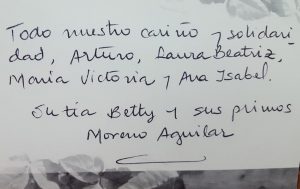 Todo nuestro cariño y solidari
dad, Arturo, Laura Beatriz,
María Victoria y Ana Isabel.
Su tía Betty y sus primos
Moreno Aguilar